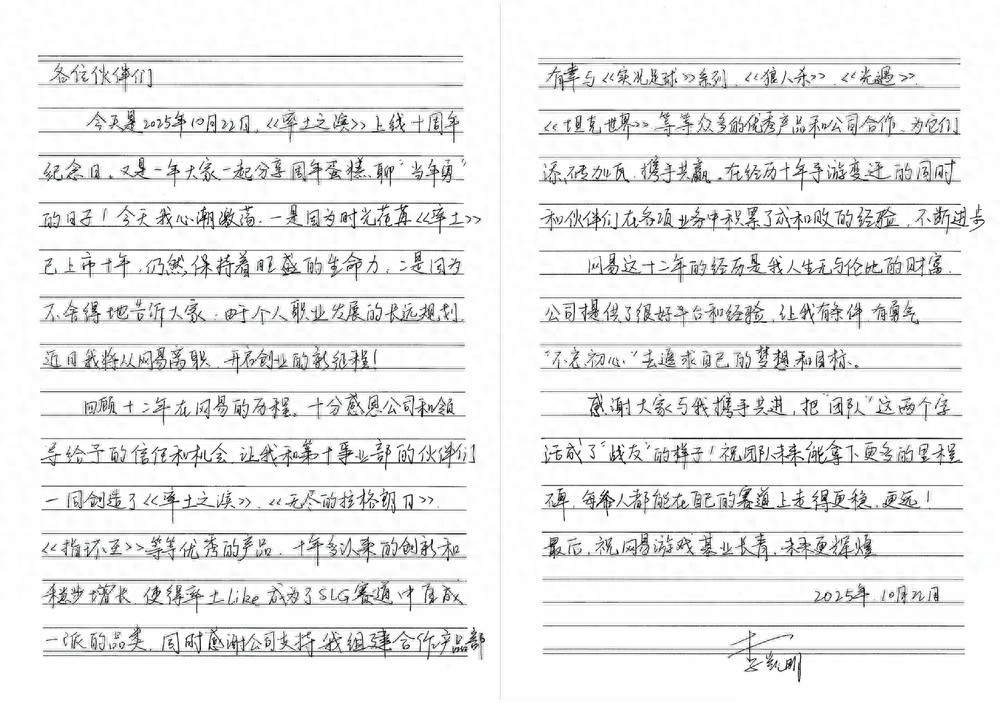 各位伙伴们
今天是2025年10月22日,《率土之滨》上线十周年
纪念日。又是一年大家一起分享周年蛋糕、聊“当年勇”
的日子！今天我心潮激荡,一是因为时光荏苒《率土》
已上市十年,仍然保持着旺盛的生命力,二是因为
不舍得地告诉大家,由于个人职业发展的长远规划,
近日我将从网易离职,开启创业的新征程！
回顾十二年在网易的历程,十分感恩公司和领
导给予的信任和机会,让我和第十事业部的伙伴们
一同创造了《率土之滨》、《无尽的拉格朗日》、
《指环王》等等优秀的产品,十年多以来的创新和
稳步增长,使得率土like成为了SLG赛道中自成
一派的品类,同时感谢公司支持我组建合作产品部
有幸与《实况足球》系列、《狼人杀》、《光遇》、
《坦克世界》等等众多的优秀产品和公司合作,为它们
添砖加瓦,携手共赢。在经历十年手游变迁的同时
和伙伴们在各项业务中积累了成和败的经验,不断进步
网易这十二年的经历是我人生无与伦比的财富,
公司提供了很好平台和经验,让我有条件 有勇气
“不忘初心”去追求自己的梦想和目标。
感谢大家与我携手共进,把“团队”这两个字
活成了“战友”的样子！祝团队未来能拿下更多的里程
碑,每个人都能在自己的赛道上走得更稳、更远！
最后,祝网易游戏基业长青,未来更辉煌
2025年10月22日
李凯明